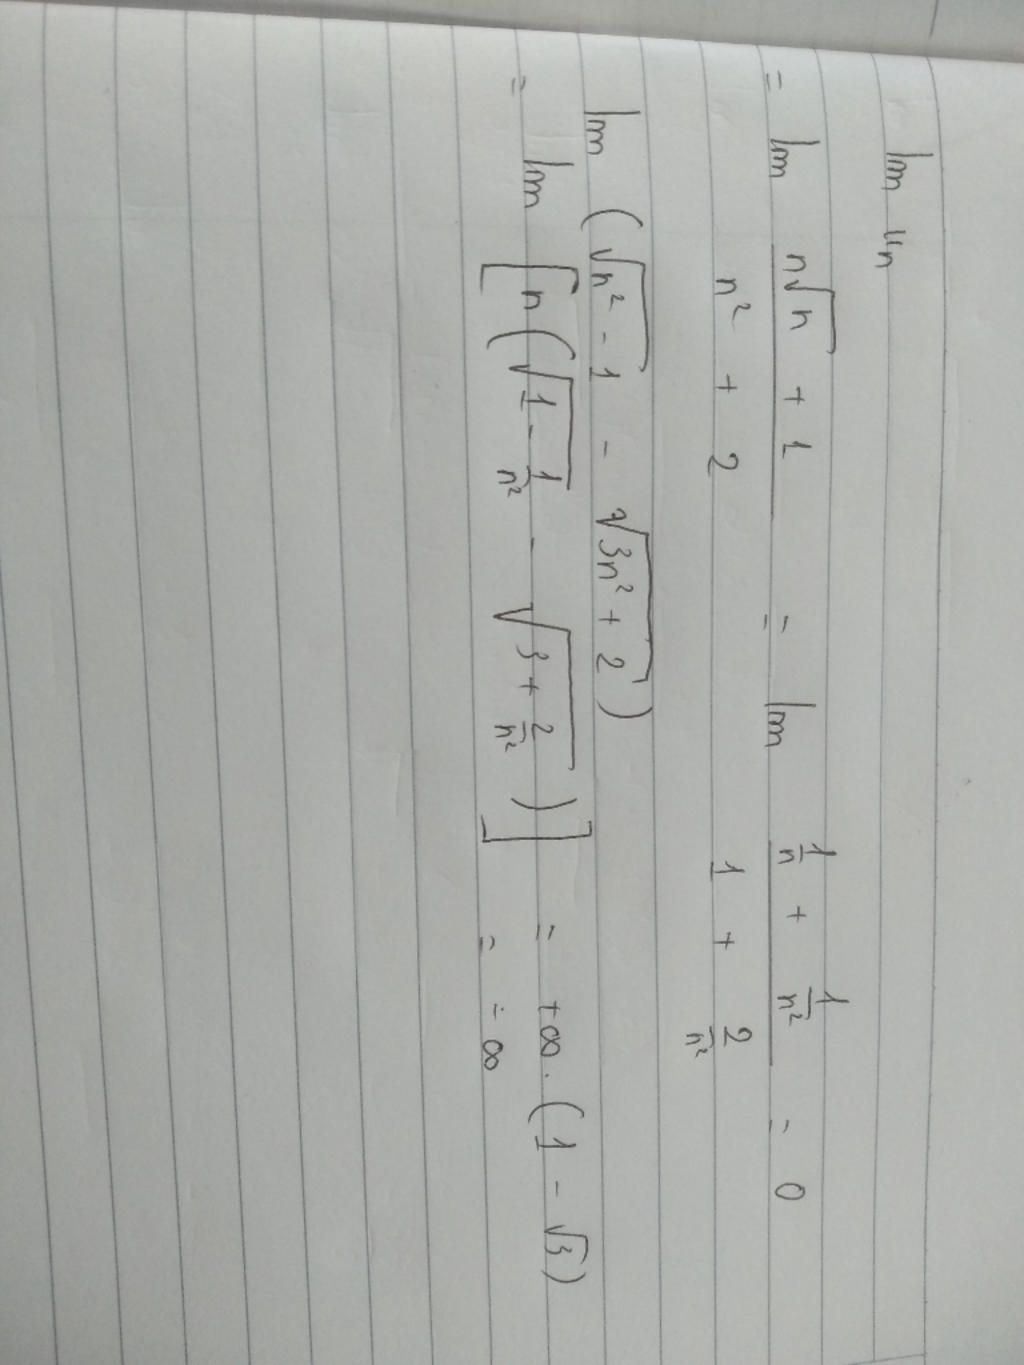 lim uₙ
= lim (n√n + 1)/(n² + 2) = lim (1/n + 1/n²)/(1 + 2/n²) = 0
lim (√(n² - 1) - √(3n² + 2))
= lim [n(√(1 - 1/n²) - √(3 + 2/n²))] = +∞. (1 - √3)
= -∞